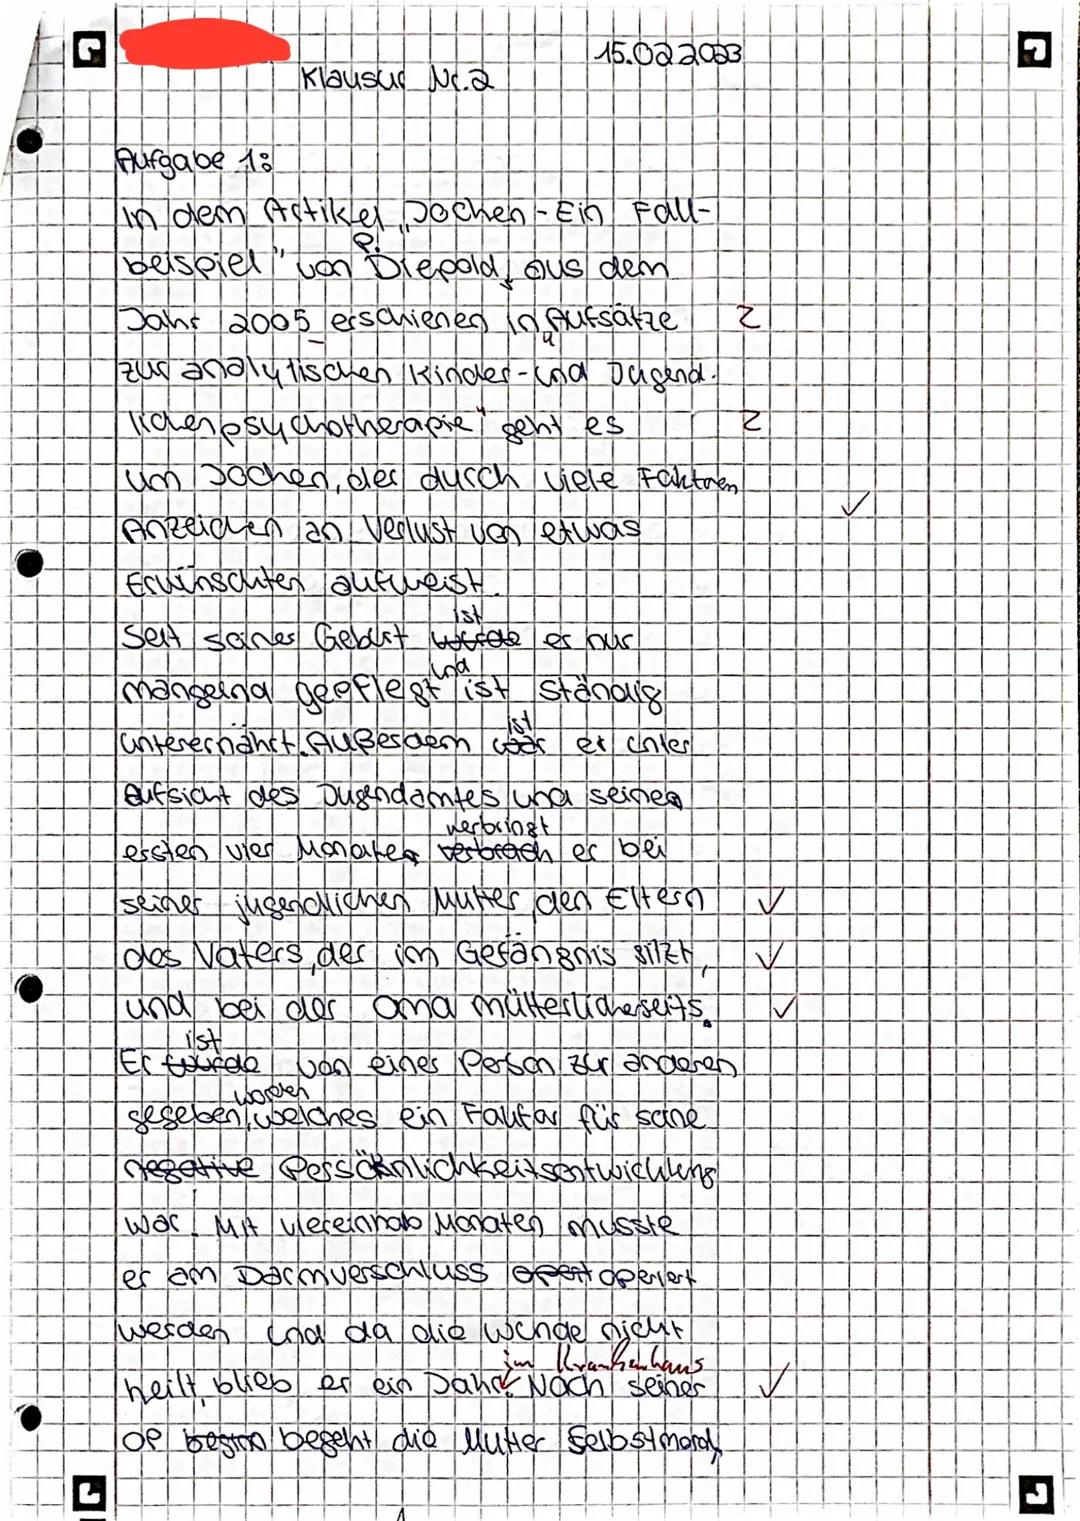 15.02.2023
Klausur Nr. 2
Aufgabe 1:
In dem Artikel „Jochen - Ein Fall-
beispiel" von P. Diepold, aus dem
Jahr 2005 erschienen in „Aufsätze
zur analytischen Kinder- und Jugend-
lichenpsychotherapie" geht es
um Jochen, der durch viele Faktoren
Anzeichen an Verlust von etwas
Erwünschten aufweist.
Seit seiner Geburt wurde ist er nur
mangelnd gepflegt und ist ständig
unterernährt. Außerdem war ist er unter
Aufsicht des Jugendamtes und seine
ersten vier Monate verbrach verbringt er bei
seiner jugendlichen Mutter, den Eltern
des Vaters, der im Gefängnis sitzt,
und bei der Oma mütterlicherseits.
Er wurde ist von einer Person zur anderen
gegeben worden, welches ein Faktor für seine
negative Persönlichkeitsentwicklung
war. Mit viereinhalb Monaten musste
er am Darmverschluss operiert
werden und da die Wunde nicht
heilt, blieb er ein Jahr im Krankenhaus. Nach seiner
OP begeht die Mutter Selbstmord,